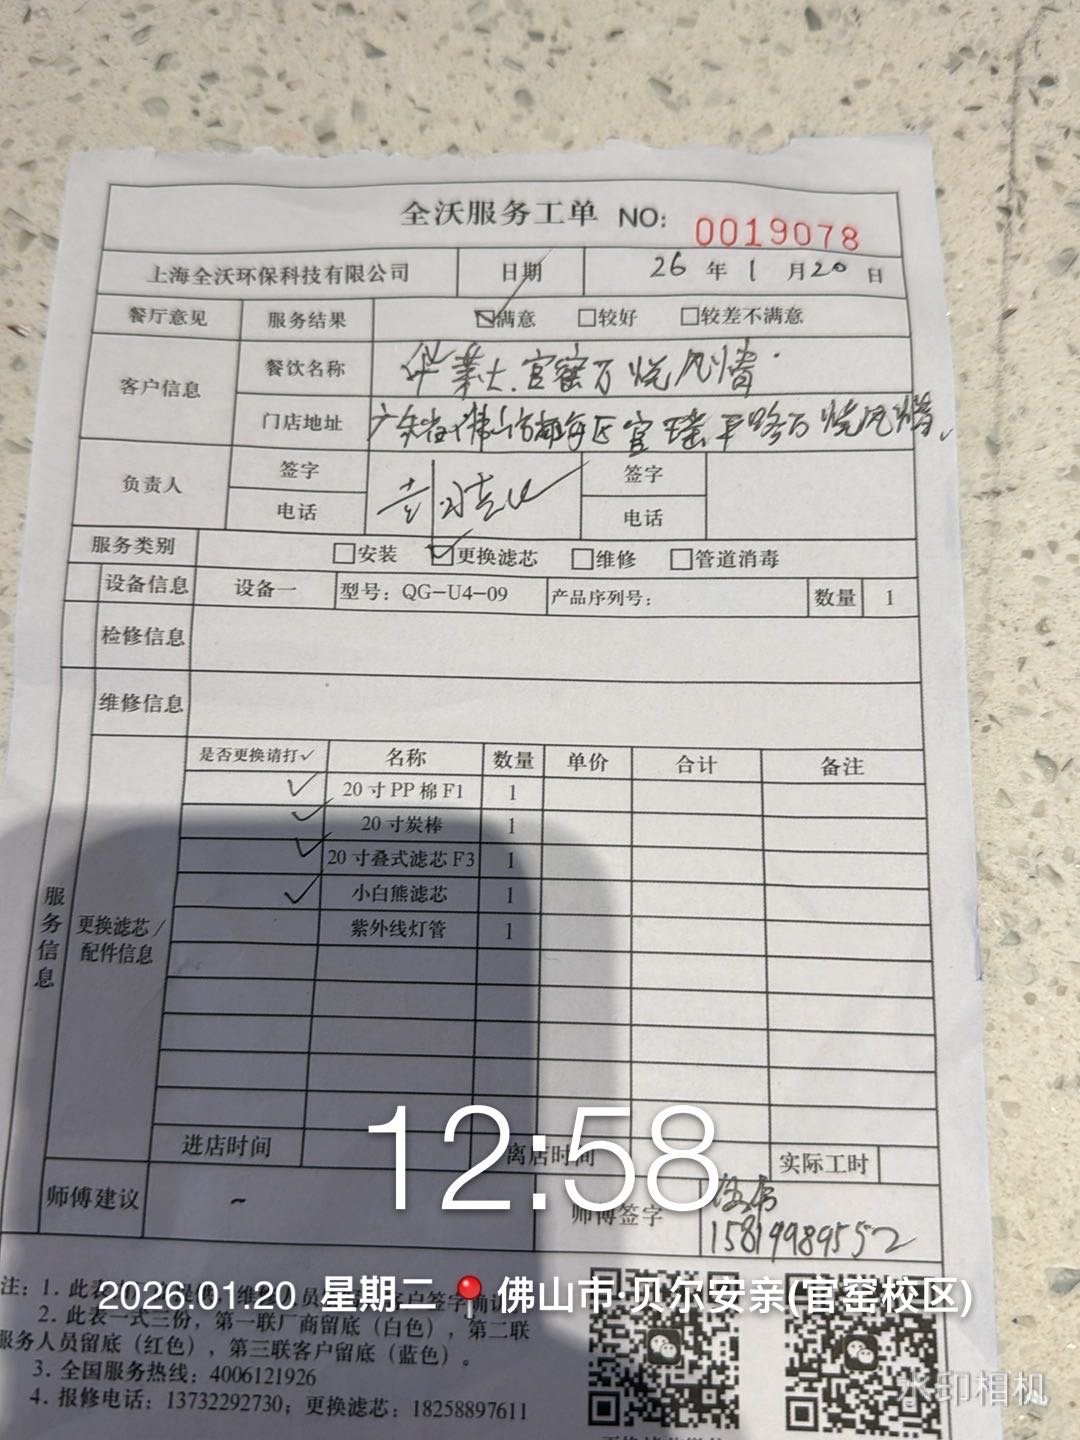 全沃服务工单 NO: 0019078
上海全沃环保科技有限公司 日期 26 年 1 月 20 日
餐厅意见 服务结果 ☑满意 □较好 □较差不满意
客户信息 餐饮名称 华莱士.官窑万悦风情
门店地址 广东省佛山市南海区官窑平路万悦风情
负责人 签字 签字
电话 电话
服务类别 □安装 ☑更换滤芯 □维修 □管道消毒
设备信息 设备一 型号：QG-U4-09 产品序列号： 数量 1
检修信息
维修信息
服务信息
更换滤芯/配件信息
是否更换请打✓ 名称 数量 单价 合计 备注
✓ 20寸PP棉F1 1
✓ 20寸炭棒 1
✓ 20寸叠式滤芯F3 1
✓ 小白熊滤芯 1
紫外线灯管 1
进店时间 离店时间 实际工时
12:58
师傅建议 师傅签字
15819989552
注：1. 此表
2026.01.20 星期二 佛山市·贝尔安亲(官窑校区)
2. 此表一式三份，第一联厂商留底（白色），第二联
服务人员留底（红色），第三联客户留底（蓝色）。
3. 全国服务热线：4006121926
4. 报修电话：13732292730；更换滤芯：18258897611
水印相机